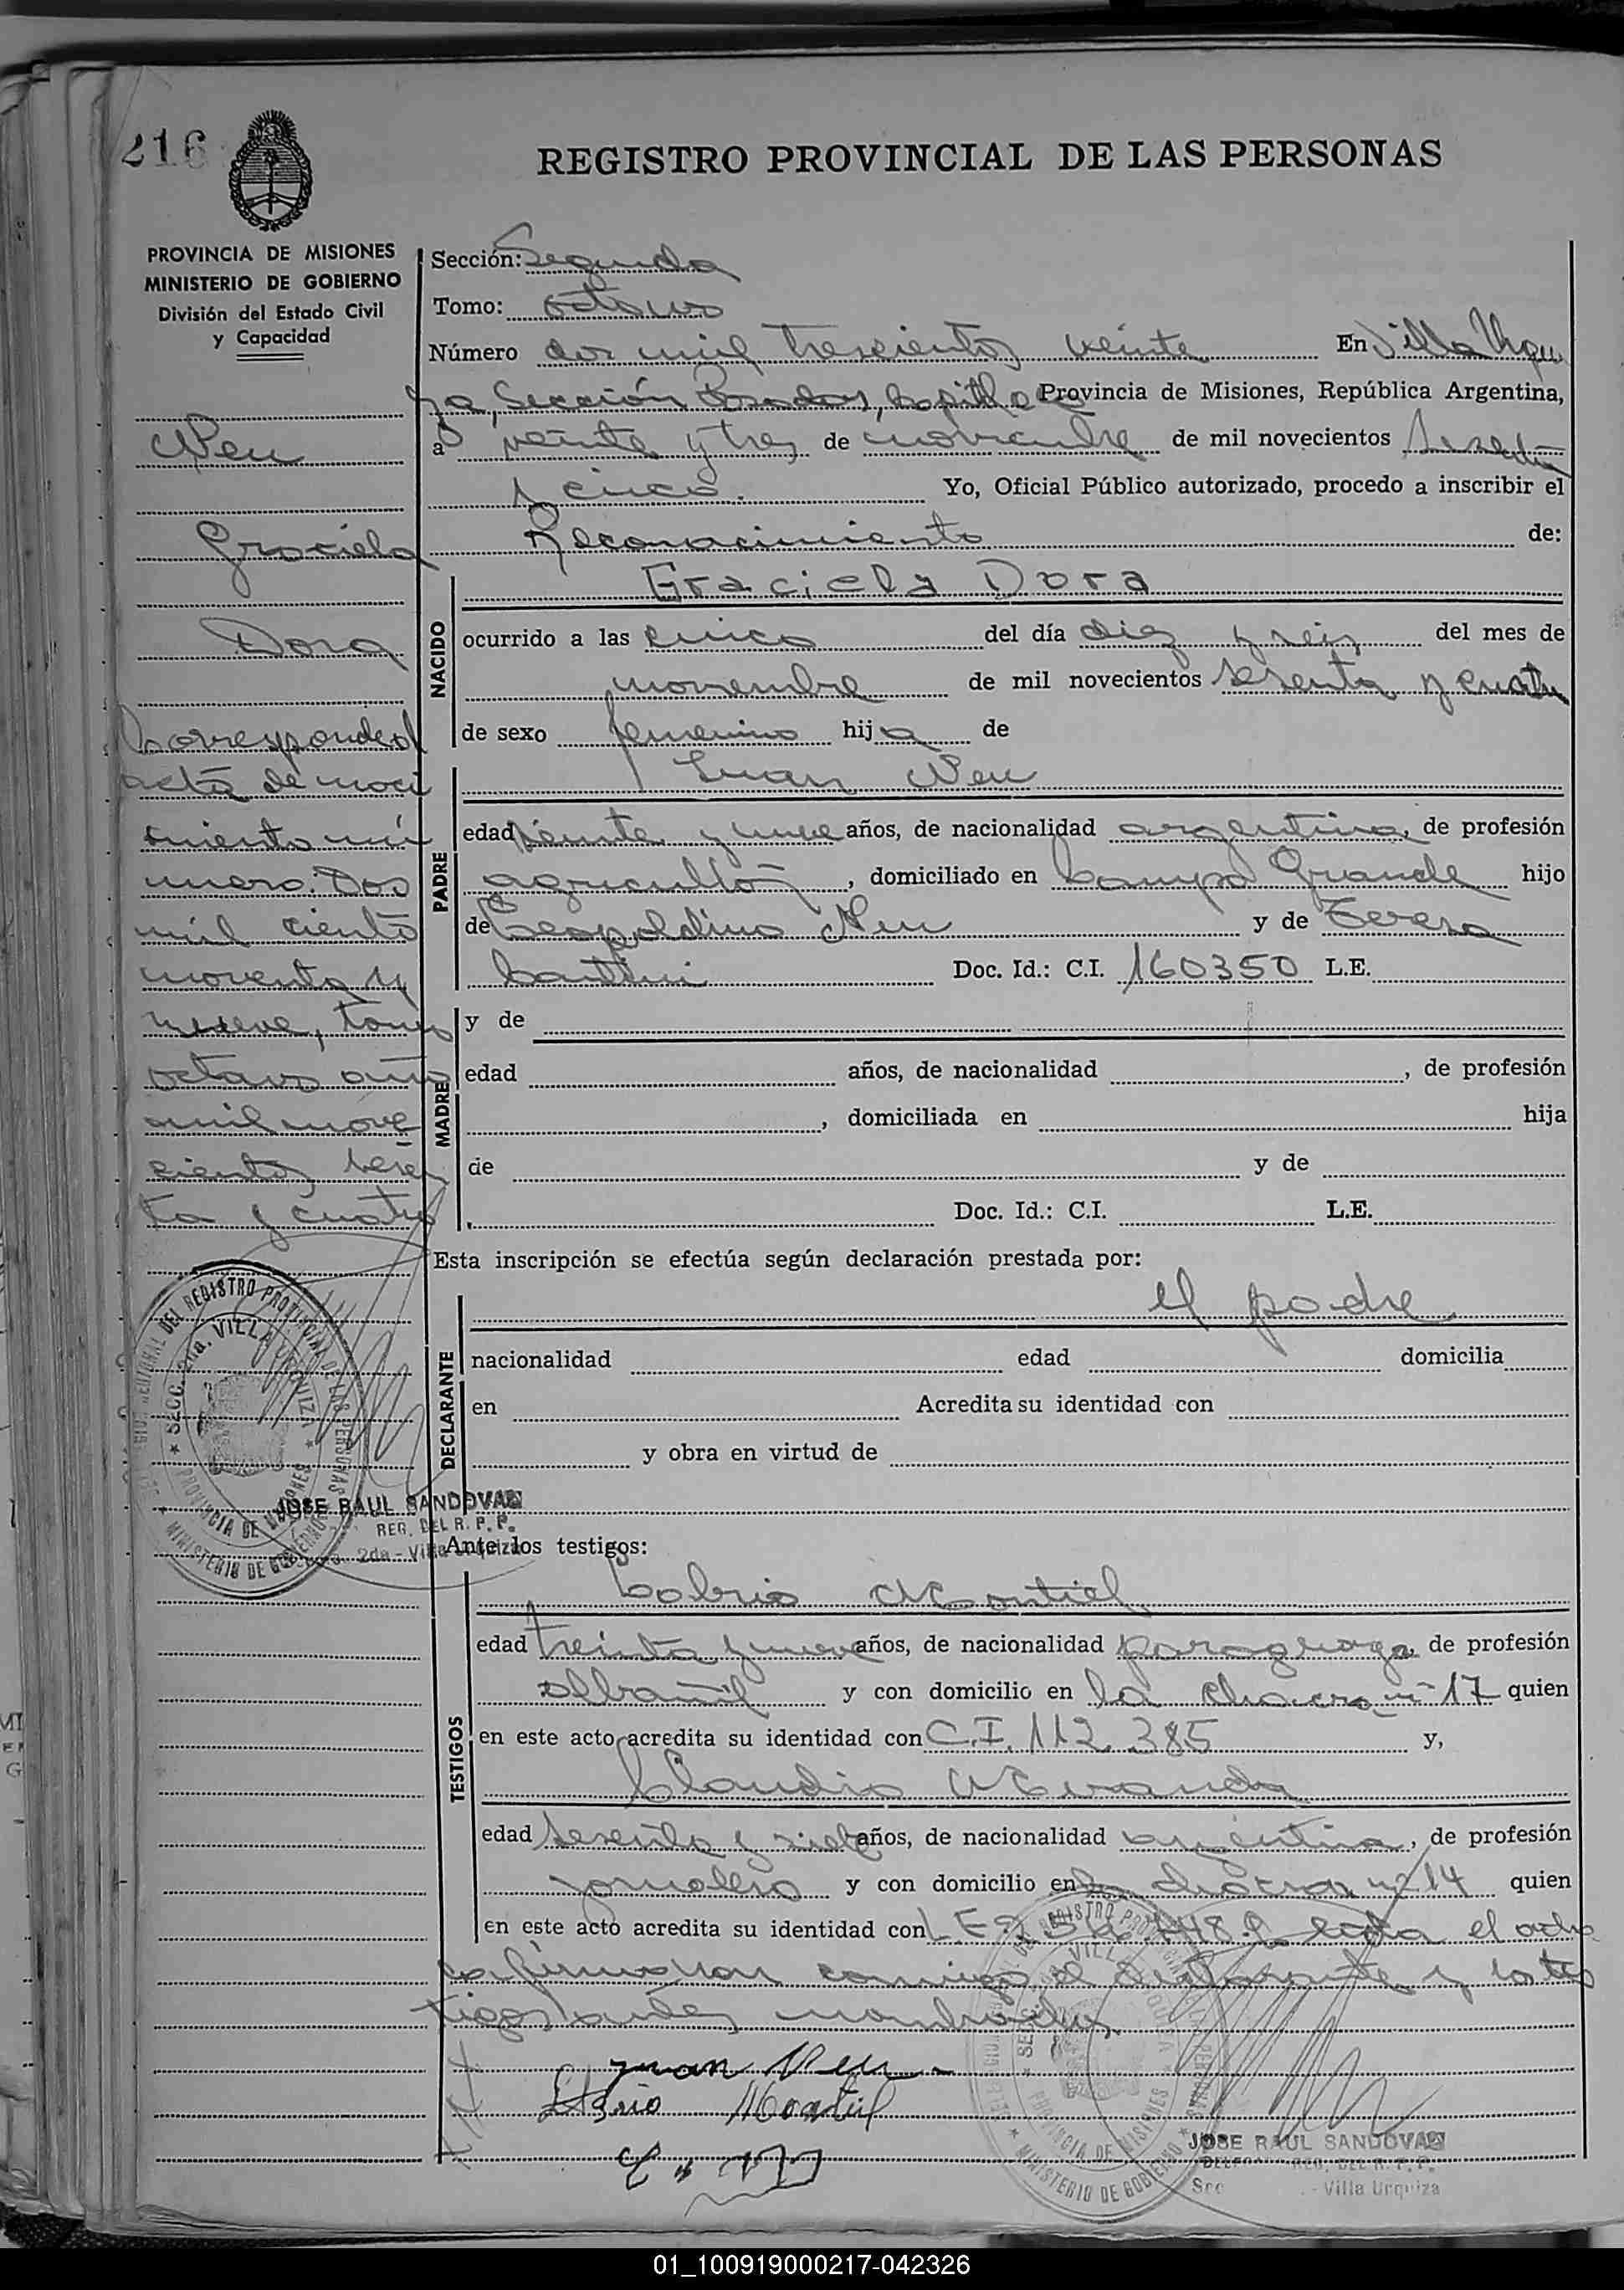 216
REGISTRO PROVINCIAL DE LAS PERSONAS
PROVINCIA DE MISIONES
MINISTERIO DE GOBIERNO
División del Estado Civil
y Capacidad
Neu
Graciela
Dora
Corresponde al
acta de naci
miento nú
mero. Dos
mil ciento
noventa y
nueve, tomo
octavo año
mil nove
cientos sesen
ta y cuatro
Sección: Segunda
Tomo: octavo
Número dos mil trescientos veinte En Villa Urqui
za, Sección Posadas, Capital Provincia de Misiones, República Argentina,
a veinte y tres de noviembre de mil novecientos sesenta
y cinco. Yo, Oficial Público autorizado, procedo a inscribir el
Reconocimiento de:
NACIDO
Graciela Dora
ocurrido a las cinco del día diez y seis del mes de
noviembre de mil novecientos sesenta y cuatro
de sexo femenino hija de
PADRE
Juan Neu
edad veinte y nueve años, de nacionalidad argentina, de profesión
agricultor, domiciliado en Campo Grande hijo
de Leopoldino Neu y de Teresa
Doc. Id.: C.I. 160350 L.E.
MADRE
y de
edad años, de nacionalidad , de profesión
, domiciliada en hija
de y de
Doc. Id.: C.I. L.E.
Esta inscripción se efectúa según declaración prestada por:
DECLARANTE
el padre
nacionalidad edad domicilia
en Acredita su identidad con
y obra en virtud de
JOSE RAUL SANDOVAL
REG. DEL R. P. P.
2da - Villa Urquiza
Ante los testigos:
TESTIGOS
Montiel
edad treinta y nueve años, de nacionalidad paraguaya, de profesión
albañil y con domicilio en la chacra nº 17 quien
en este acto acredita su identidad con C.I. 112.385 y,
Claudio Miranda
edad sesenta y siete años, de nacionalidad argentina, de profesión
jornalero y con domicilio en la chacra nº 14 quien
en este acto acredita su identidad con L.E. leida el acta
la firmaron conmigo el declarante y los tes
tigos antes nombrados.
Juan Neu
Montiel
JOSE RAUL SANDOVAL
DEL R. P. P.
Villa Urquiza
01_100919000217-042326